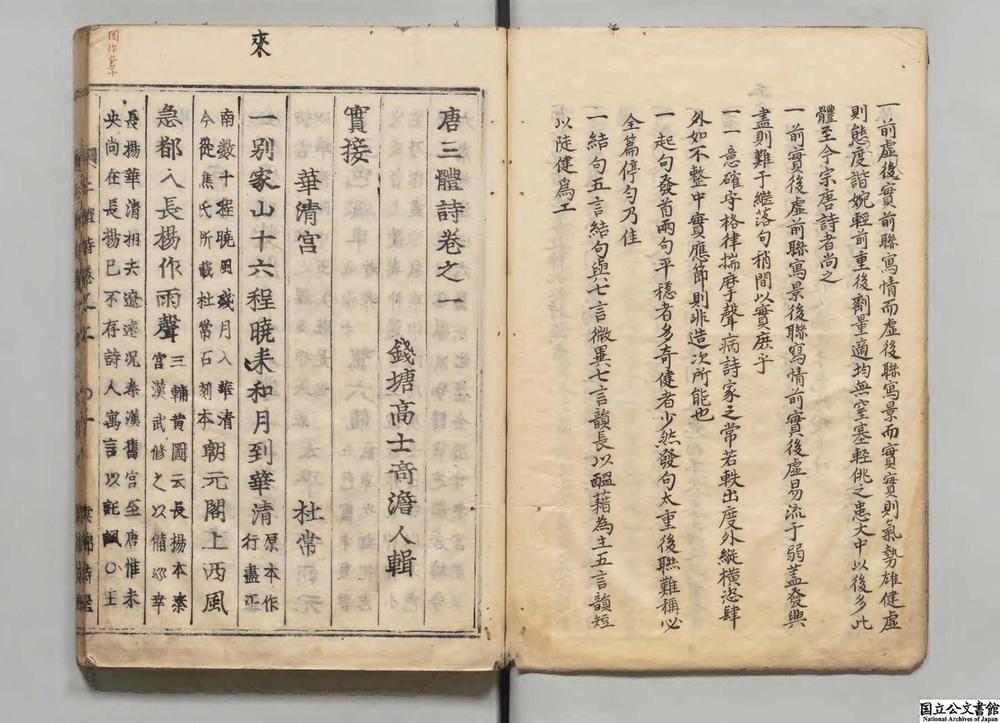 一前虚後實前聯寫情而虚後聯寫景而實實則氣勢雄健虚
則態度諧婉輕前重後劑量適均無窒塞輕佻之患大中以後多此
體至今宗唐詩者尚之
一前實後虚前聯寫景後聯寫情前實後虚易流于弱蓋發興
盡則難于繼落句稍間以實庶乎
一一意確守格律揣摩聲病詩家之常若軼出度外縱横恣肆
外如不整中實應節則非造次所能也
一起句發首兩句平穩者多奇健者少然發句太重後聯難稱必
全篇停匀乃佳
一結句五言結句與七言微異七言韻長以醖藉為主五言韻短
以陡健爲工
來
唐三體詩卷之一
錢塘高士奇澹人輯
實接
華清宫 杜常
一别家山十六程曉来和月到華清 原本作行盡江
南数十程曉風殘月入華清今從焦氏所載杜常石刻本 朝元閣上西風
急都入長楊作雨聲 三輔黄圖云長楊本秦宫漢武修之以備廵幸
長楊華清相去遼遠况秦漢舊宫至唐惟未央尚在長楊已不存詩人寓言以託諷〇王
国立公文書館
National Archives of Japan